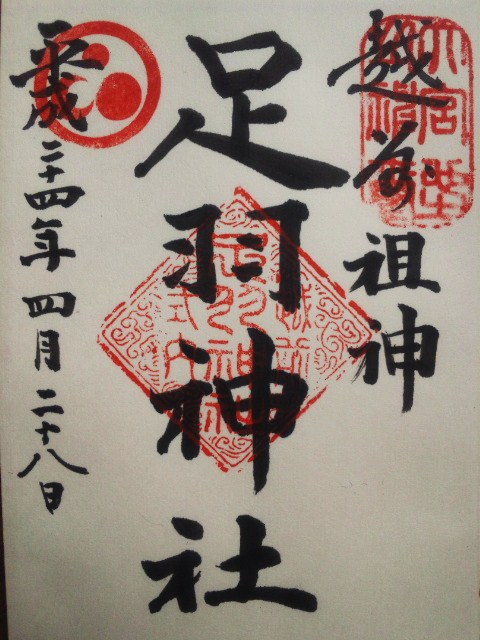 越前祖神
足羽神社
平成二十四年四月二十八日